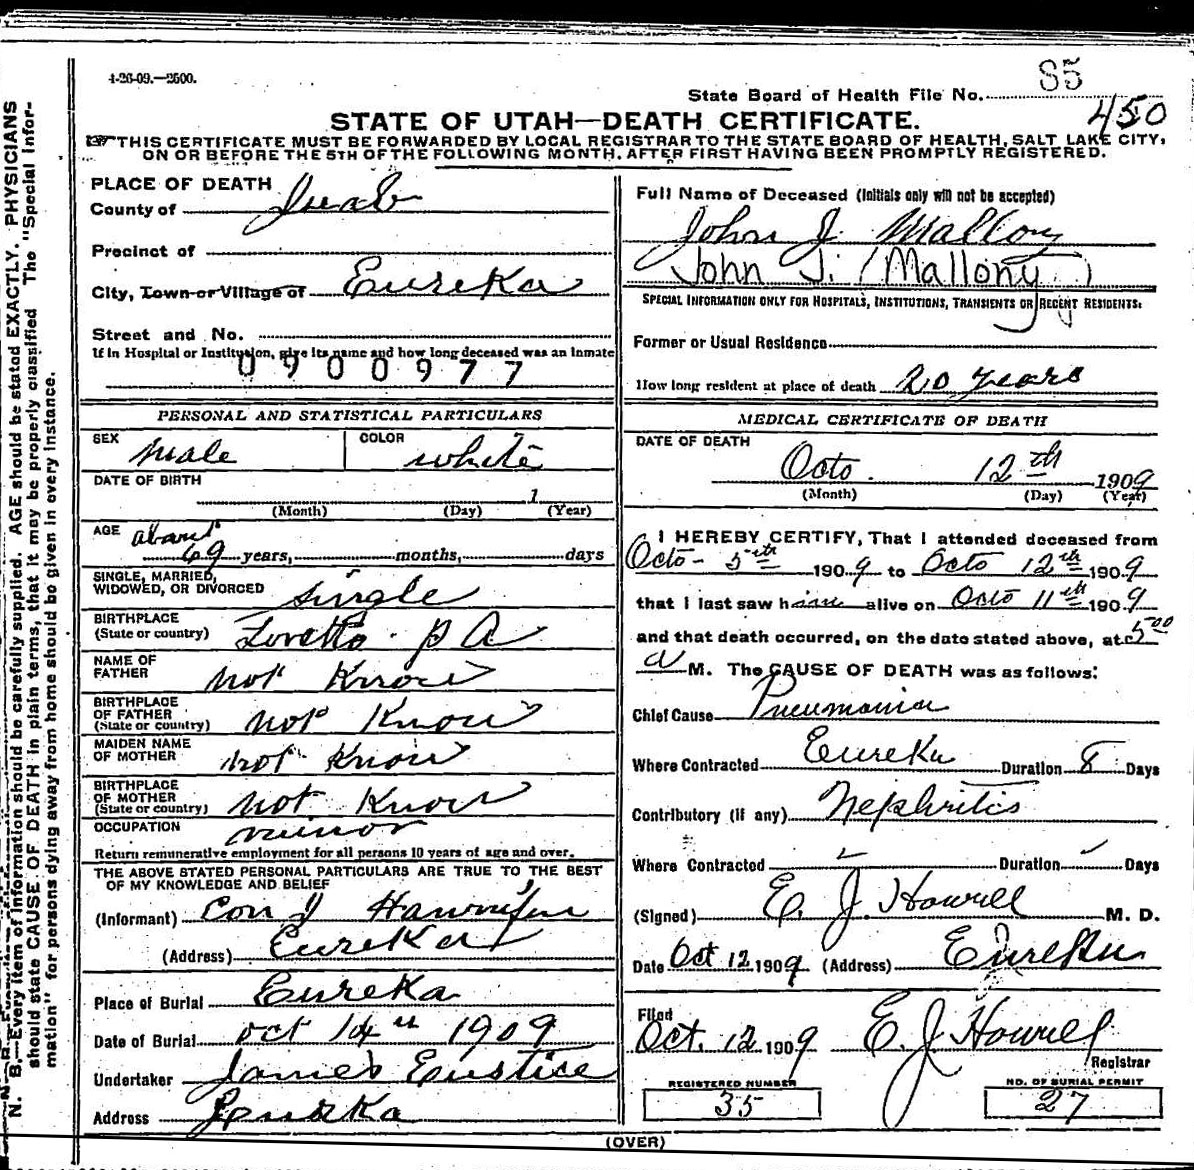 4-26-09.—2500.
State Board of Health File No. 85
450
STATE OF UTAH—DEATH CERTIFICATE.
THIS CERTIFICATE MUST BE FORWARDED BY LOCAL REGISTRAR TO THE STATE BOARD OF HEALTH, SALT LAKE CITY,
ON OR BEFORE THE 5TH OF THE FOLLOWING MONTH, AFTER FIRST HAVING BEEN PROMPTLY REGISTERED.
PLACE OF DEATH
County of Juab
Precinct of
City, Town or Village of Eureka
Street and No.
If in Hospital or Institution, give its name and how long deceased was an inmate
0900977
PERSONAL AND STATISTICAL PARTICULARS
SEX male COLOR white
DATE OF BIRTH
1
(Month) (Day) (Year)
AGE about
69 years, months, days
SINGLE, MARRIED,
WIDOWED, OR DIVORCED single
BIRTHPLACE
(State or country) Loretto. PA
NAME OF
FATHER not Know
BIRTHPLACE
OF FATHER
(State or country) not Know
MAIDEN NAME
OF MOTHER not Know
BIRTHPLACE
OF MOTHER
(State or country) not Know
OCCUPATION minor
Return remunerative employment for all persons 10 years of age and over.
THE ABOVE STATED PERSONAL PARTICULARS ARE TRUE TO THE BEST
OF MY KNOWLEDGE AND BELIEF
(Informant) Con J
(Address) Eureka
Place of Burial Eureka
Date of Burial oct 14th 1909
Undertaker James Eustice
Address Eureka
Full Name of Deceased (Initials only will not be accepted)
John J. Mallony
John J. (Mallony)
SPECIAL INFORMATION ONLY FOR HOSPITALS, INSTITUTIONS, TRANSIENTS OR RECENT RESIDENTS:
Former or Usual Residence
How long resident at place of death 20 years
MEDICAL CERTIFICATE OF DEATH
DATE OF DEATH
Octo. 12th 1909
(Month) (Day) (Year)
I HEREBY CERTIFY, That I attended deceased from
Octo- 5th 1909 to Octo 12th 1909
that I last saw him alive on Octo 11th 1909
and that death occurred, on the date stated above, at 5 00
a M. The CAUSE OF DEATH was as follows:
Chief Cause Pneumonia
Where Contracted Eureka Duration 8 Days
Contributory (if any) Nephritis
Where Contracted Duration Days
(Signed) E. J. Howell M. D.
Date Oct 12 1909 (Address) Eureka
Filed
Oct. 12 1909 E. J. Howell
Registrar
REGISTERED NUMBER
35
NO. OF BURIAL PERMIT
27
(OVER)
N. B.—Every item of information should be carefully supplied. AGE should be stated EXACTLY. PHYSICIANS
should state CAUSE OF DEATH in plain terms, that it may be properly classified. The "Special Infor-
mation" for persons dying away from home should be given in every instance.